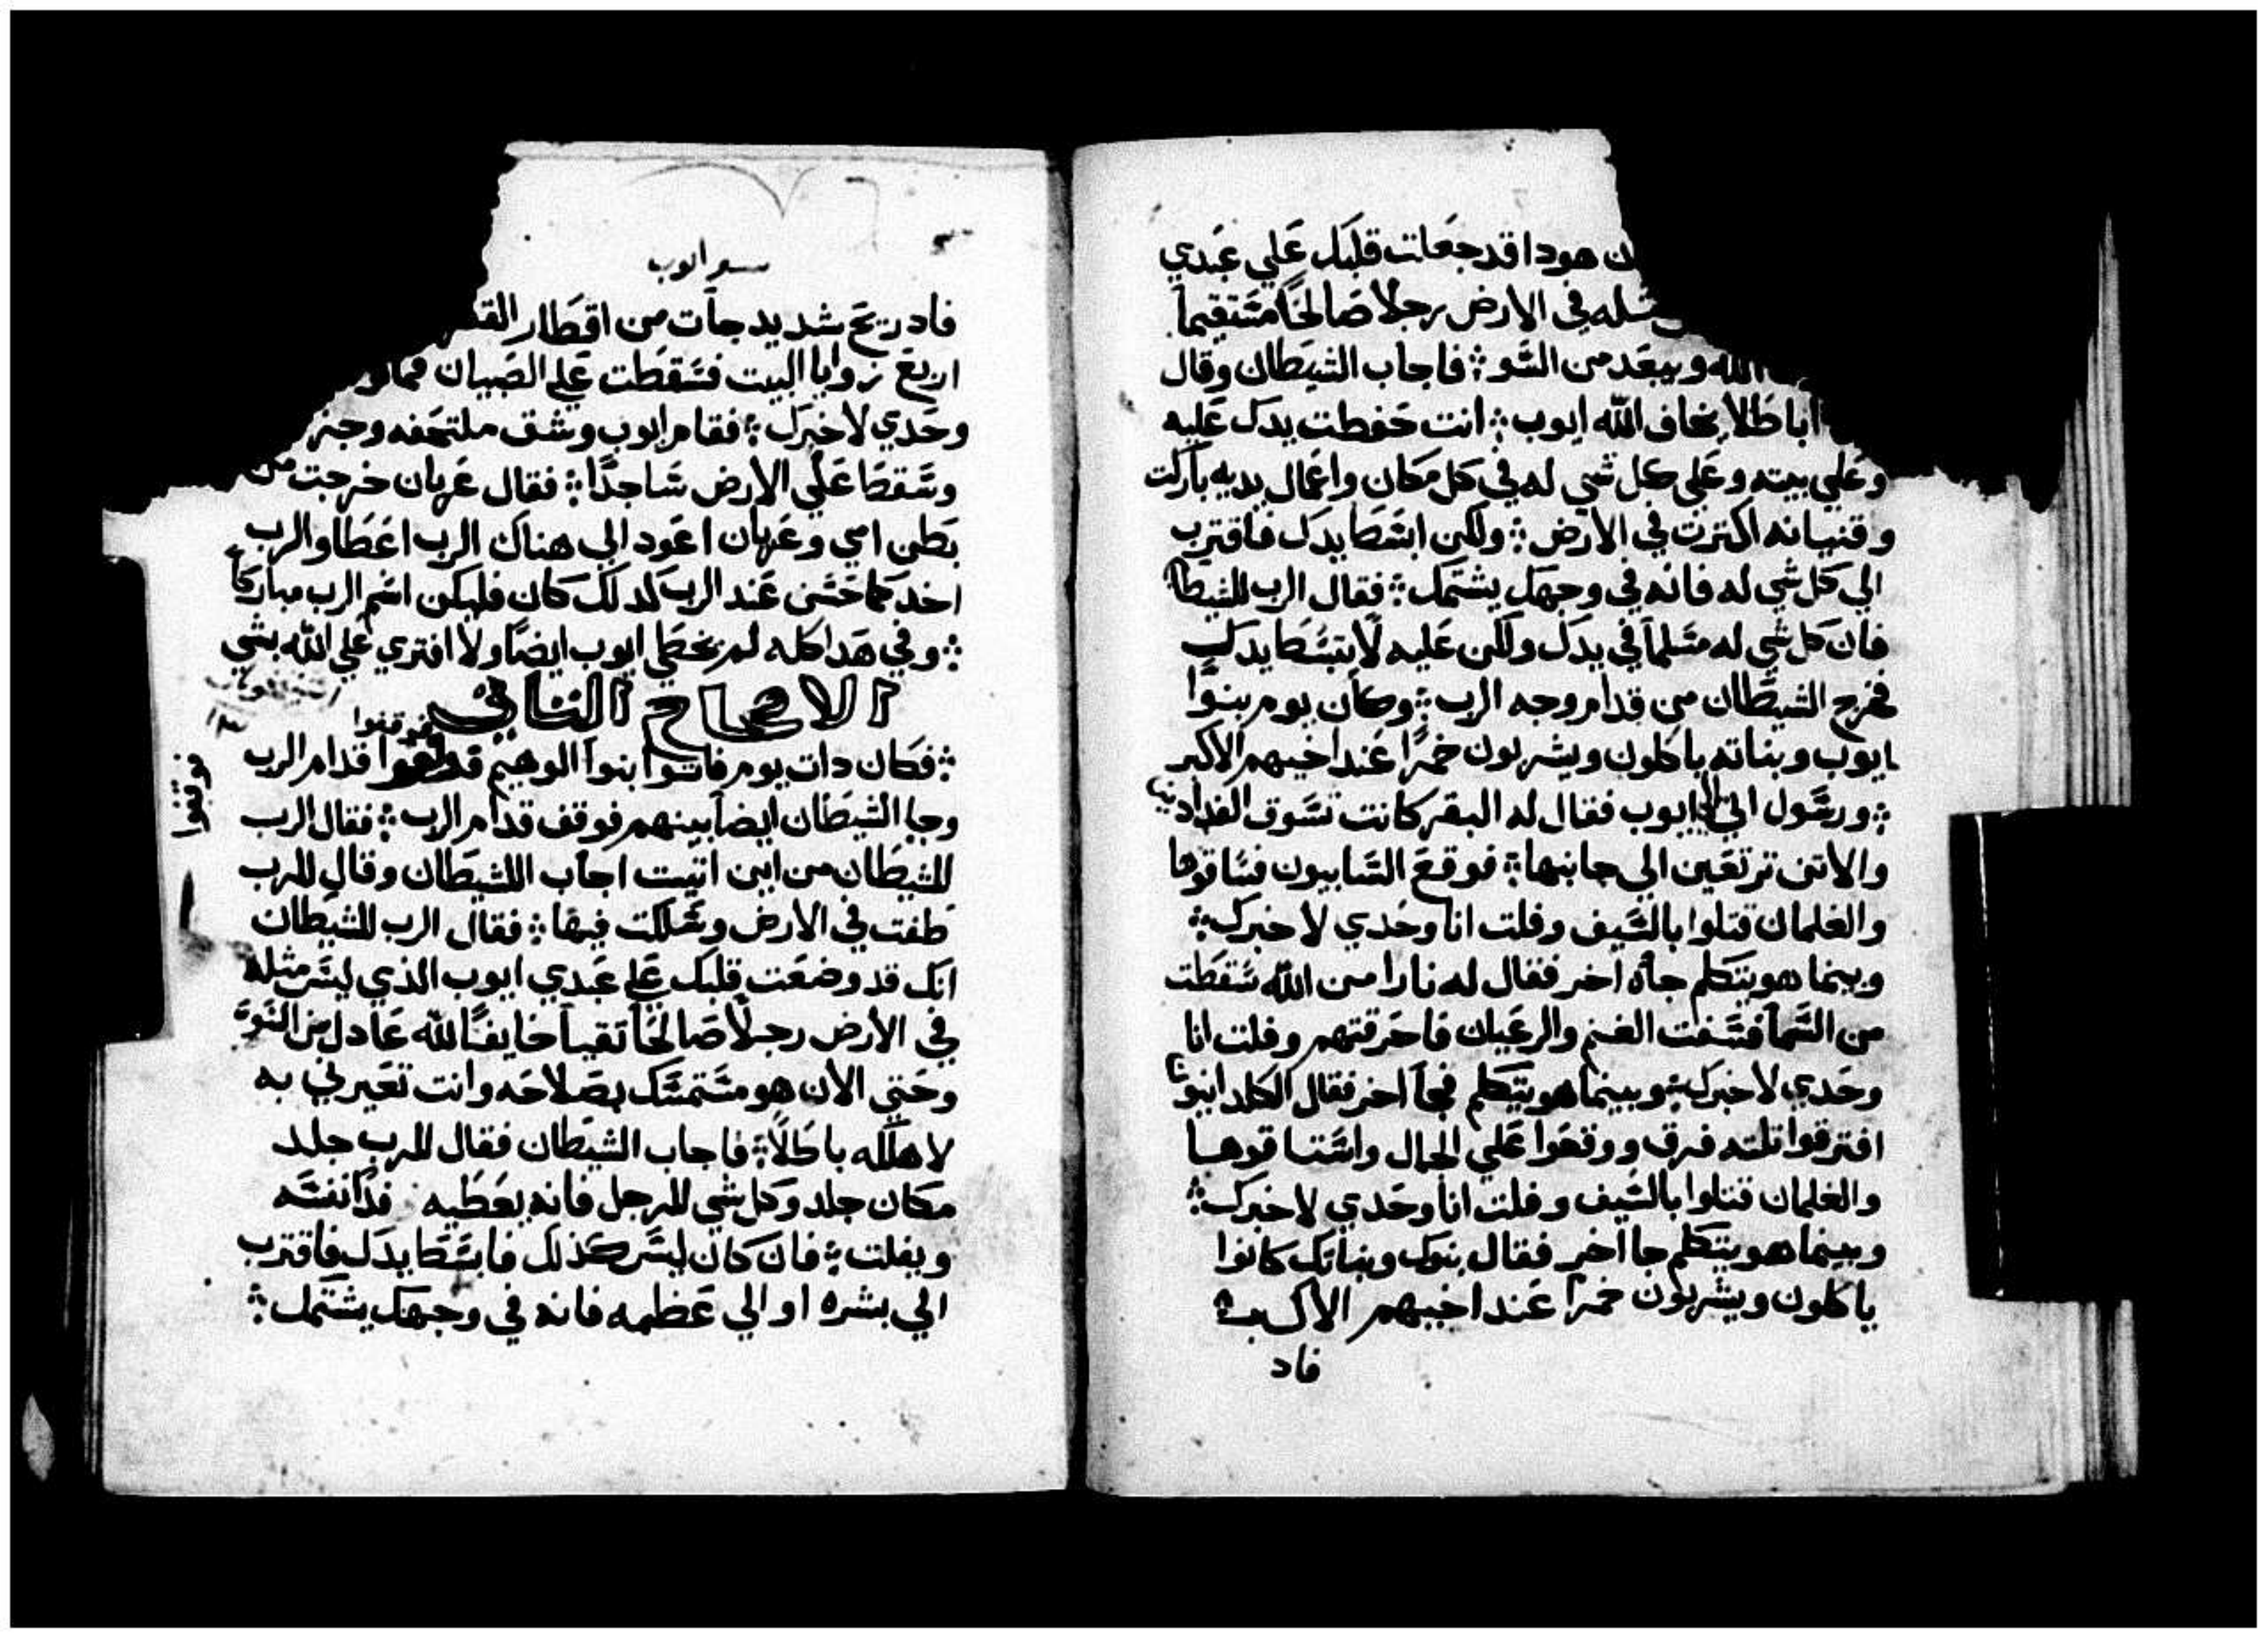 هودا قد جعلت قلبك علي عبدي
في الارض رجلاً صالحاً مستقيماً
الله ويبعد من السو ܀ فاجاب الشيطان وقال
اباطلاً يخاف الله ايوب ܀ انت حفطت يدك عليه
وعلي بيته وعلي كل شي له في كل مكان واعمال يديه باركت
وقنيانه اكترت في الارض ܀ ولكن ابسطا يدك فاقترب
الي كل شي له فانه في وجهك يشتمك ܀ فقال الرب للشيطان
فان كل شي له مسلماً في يدك ولكن عليه لا تبسطا يدك
فخرج الشيطان من قدام وجه الرب ܀ وكان يوم بنوا
ايوب وبناته ياكلون ويشربون خمراً عند اخيهم الاكبر
܀ ورسول اتي الي ايوب فقال له البقر كانت تسوق الفدادين
والاتن ترتعين الي جانبها ܀ فوقع السابيون فساقوها
والغلمان قتلوا بالسيف وفلت انا وحدي لاخبرك ܀
وبينما هو يتكلم جاه اخر فقال له نارا من الله سقطت
من السما فسفت الغنم والرعيان فاحرقتهم وفلت انا
وحدي لاخبرك ܀ وبينما هو يتكلم فجا اخر فقال الكلدانيون
افترقوا تلته فرق ووقعوا علي الجمال واستاقوها
والغلمان قتلوا بالسيف وفلت انا وحدي لاخبرك ܀
وبينما هو يتكلم جا اخر فقال بنوك وبناتك كانوا
ياكلون ويشربون خمرا عند اخيهم الاكبر
فاد
سفر ايوب
فاد ريح شديد جات من اقطار
اربع زوايا البيت فسقطت علي الصبيان
وحدي لاخبرك ܀ فقام ايوب وشق ملتحفه وجز
وسقطا علي الارض ساجدًا ܀ فقال عريان خرجت من
بطن امي وعريان اعود الي هناك الرب اعطا والرب
اخد كما حسن عند الرب كدلك كان فليكن اسم الرب مباركاً
܀ وفي هدا كله لم يخطي ايوب ايضاً ولا افتري علي الله بشي
الاصحاح التاني
فوقفوا
܀ فكان دات يوم فاتوا بنوا الوهيم قدام الرب
فوقفوا
وجا الشيطان ايضاً بينهم فوقف قدام الرب ܀ فقال الرب
للشيطان من اين اتيت اجاب اللشيطان وقال للرب
طفت في الارض وسلكت فيها ܀ فقال الرب للشيطان
انك قد وضعت قلبك علي عبدي ايوب الذي ليس مثله
في الارض رجلاً صالحاً تقياً خايفاً لله عادل من السوء
وحتي الان هو مستمسك بصلاحه وانت تعيرني به
لاهلكه باطلاً ܀ فاجاب الشيطان فقال للرب جلد
مكان جلد وكل شي للرجل فانه يعطيه فدا نفسه
ويفلت ܀ فان كان ليس كذلك فابسطا يدك فاقترب
الي بشره او الي عظمه فانه في وجهك يشتمك ܀